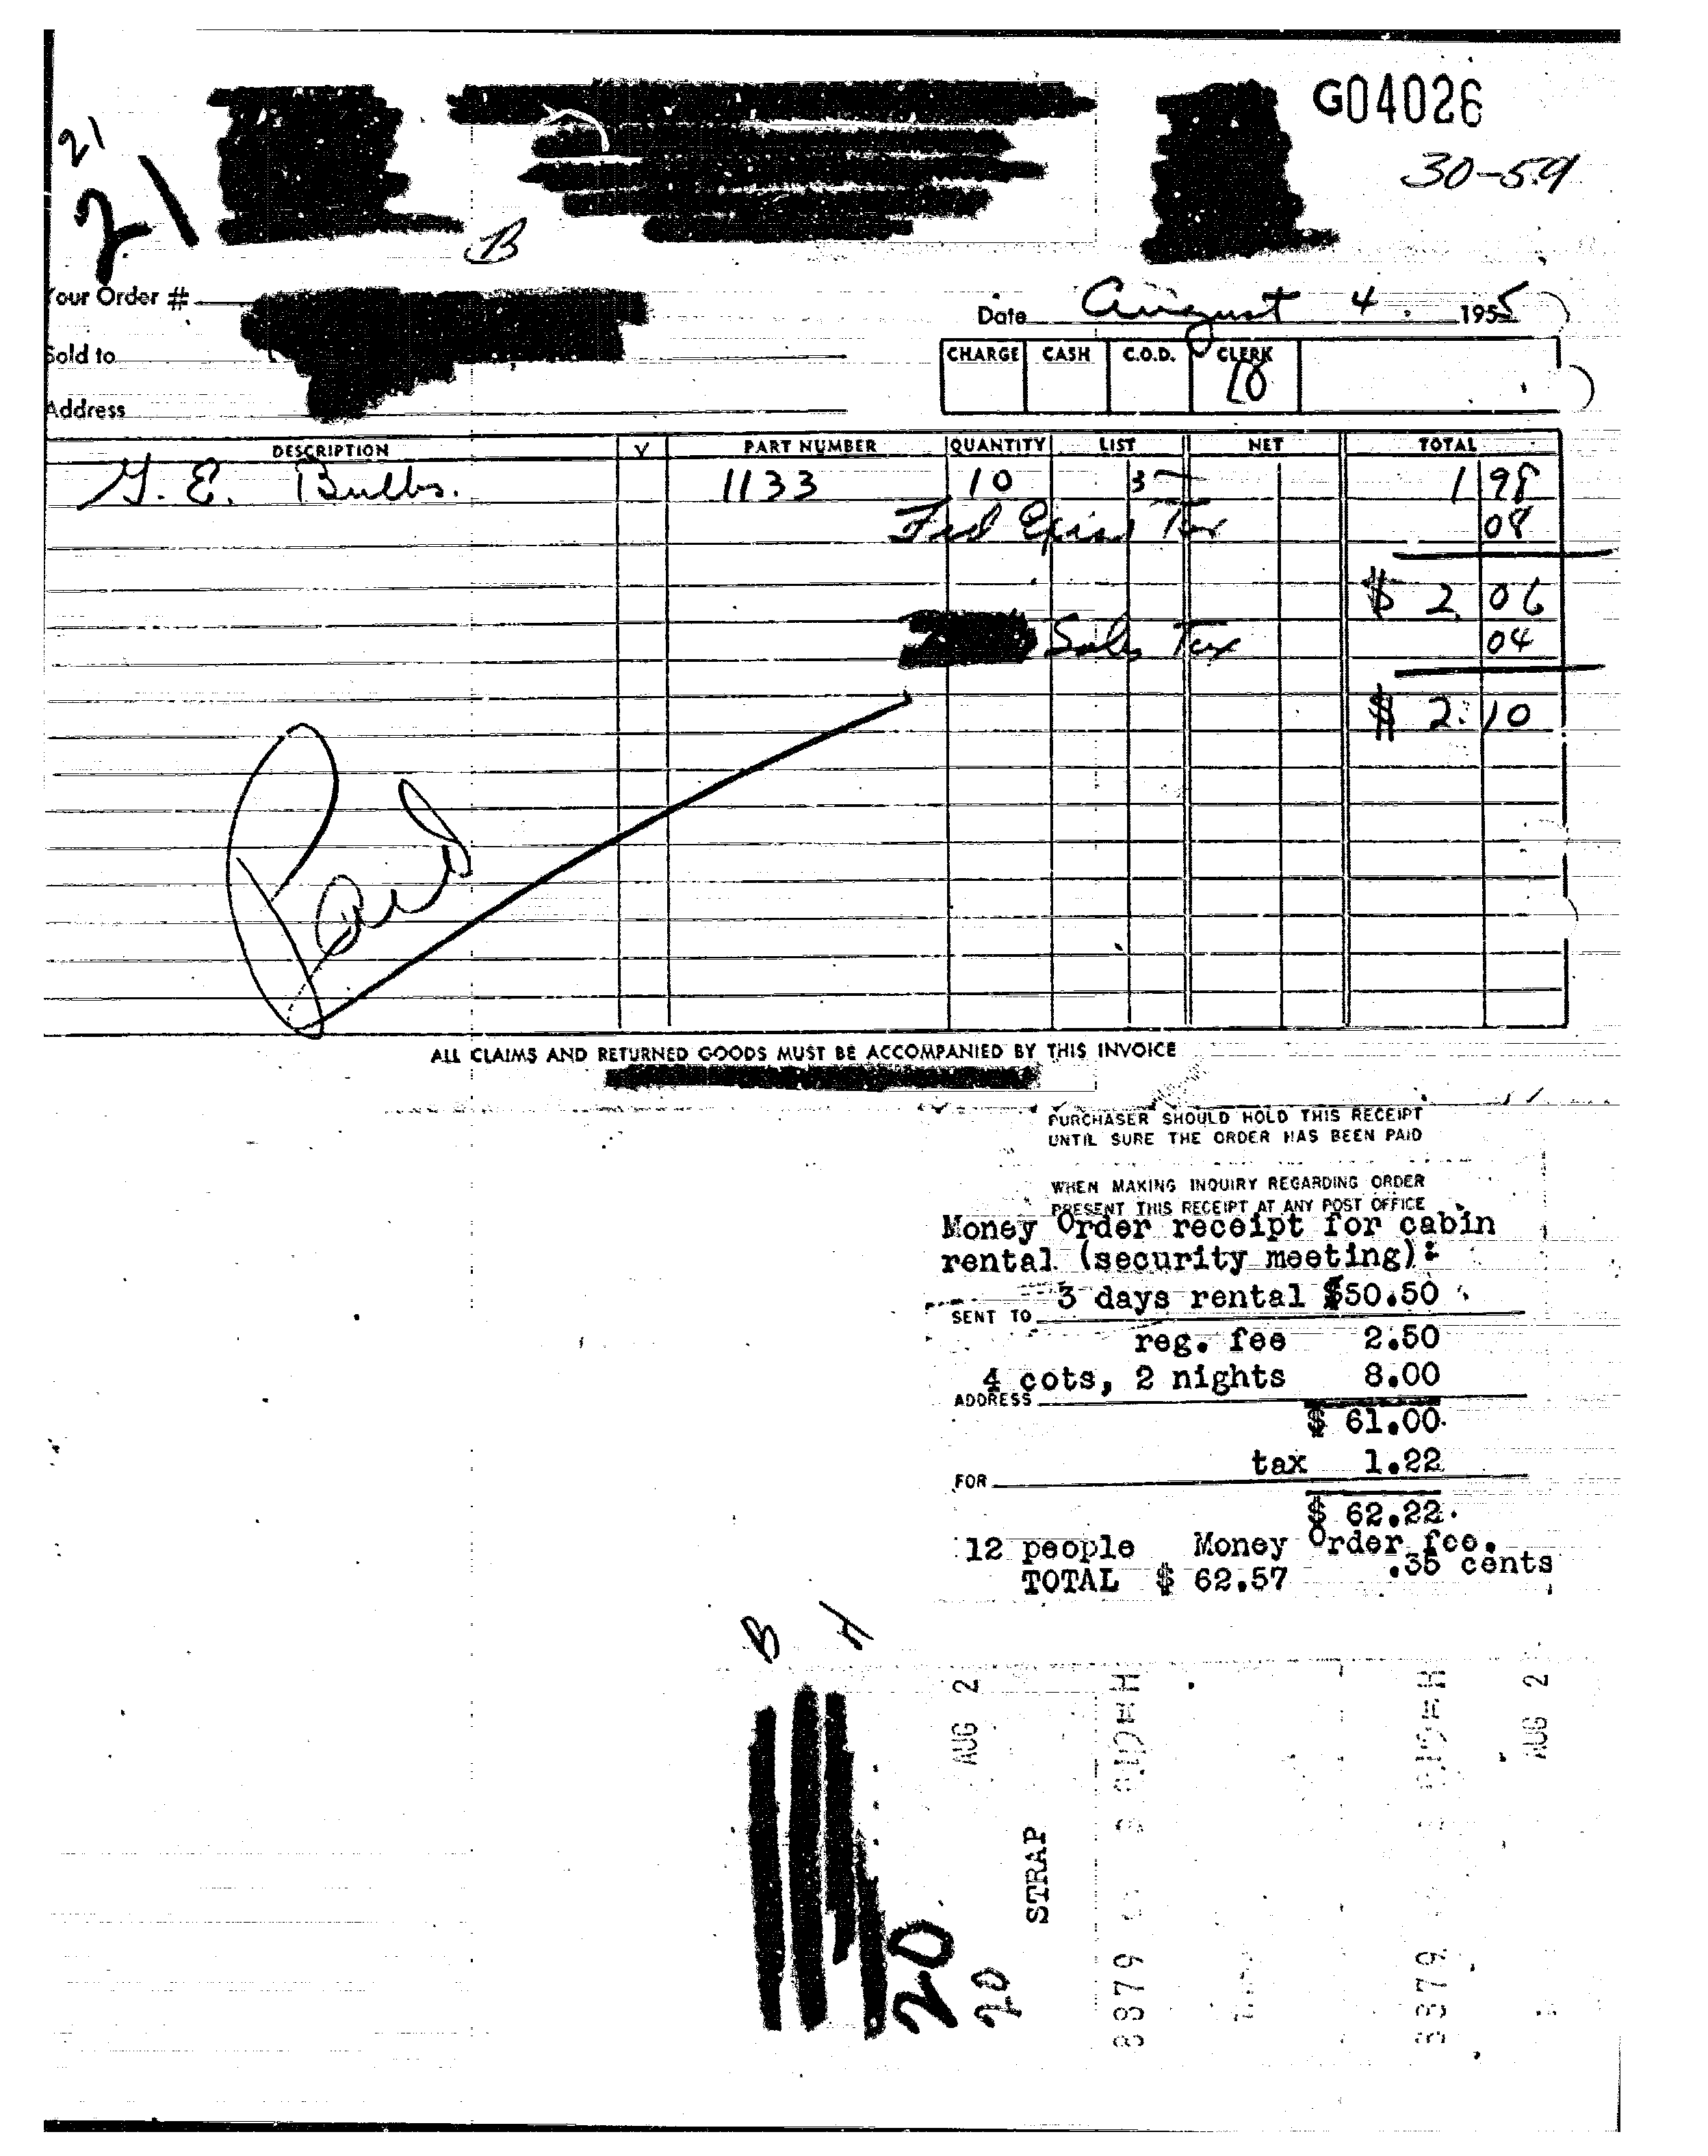 G04026
30-59
21
21
B
Your Order #
Date August 4. 1955
Sold to
CHARGE CASH C.O.D. CLERK
18
Address
DESCRIPTION V PART NUMBER QUANTITY LIST NET TOTAL
G. E. Bulbs. 1133 10 37 1 98
Fed Excise Tax 08
$ 2 06
Sales Tax 04
$ 2.10
Paid
ALL CLAIMS AND RETURNED GOODS MUST BE ACCOMPANIED BY THIS INVOICE
PURCHASER SHOULD HOLD THIS RECEIPT
UNTIL SURE THE ORDER HAS BEEN PAID
WHEN MAKING INQUIRY REGARDING ORDER
PRESENT THIS RECEIPT AT ANY POST OFFICE
Money Order receipt for cabin
rental (security meeting):
3 days rental $50.50
SENT TO
reg. fee 2.50
4 cots, 2 nights 8.00
ADDRESS
$ 61.00
tax 1.22
FOR
$ 62.22
12 people Money Order fee.
TOTAL $ 62.57 .35 cents
B
AUG 2
AUG 2
STRAP
20
20
8879